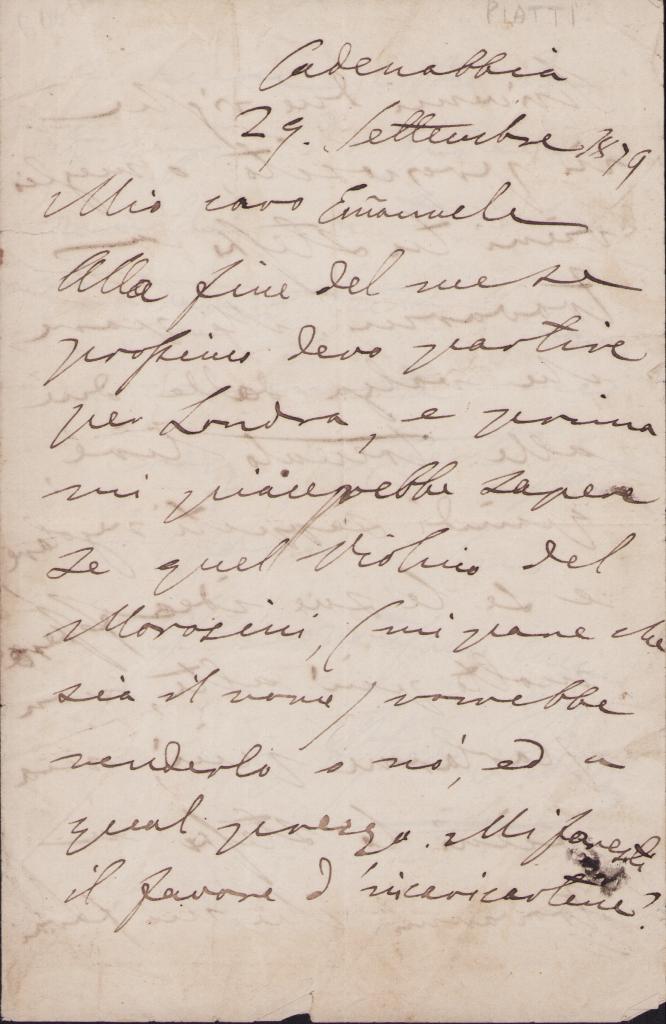 PIATTI
Cadenabbia
29. Settembre 1879
Mio caro Emanuele
Alla fine del mese
prossimo devo partire
per Londra, e prima
mi piacerebbe sapere
se quel Violino del
Morosini, (mi pare che
sia il nome) vorrebbe
venderlo o nò, ed a
qual prezzo. Mi faresti
il favore d'incaricartene?